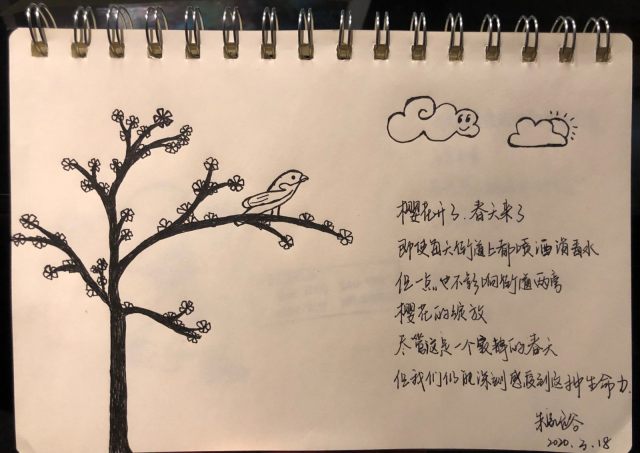 樱花开了、春天来了
即使每天街道上都喷洒消毒水
但一点也不影响街道两旁
樱花的绽放
尽管这是一个寂静的春天
但我们仍能深刻感受到这种生命力
2020.3.18